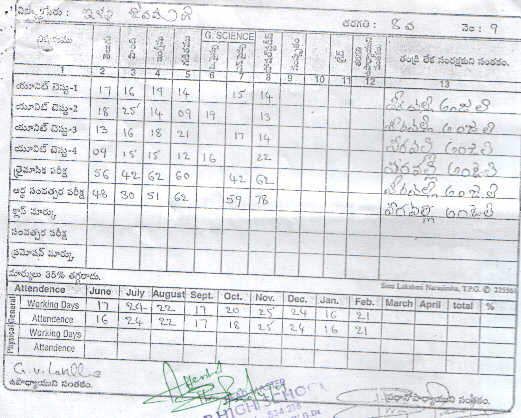 తరగతి : 8 వ నెం : 9
విషయము G. SCIENCE
1 2 3 4 5 6 7 8 9 10 11 12 13
తండ్రి లేక సంరక్షకుని సంతకం.
యూనిట్ టెస్టు-1 17 16 19 14 15 14
యూనిట్ టెస్టు-2 18 25 14 09 19 13
యూనిట్ టెస్టు-3 13 16 18 21 17 14
యూనిట్ టెస్టు-4 09 15 15 12 16 22
త్రైమాసిక పరీక్ష 56 42 62 60 42 62
అర్ధ సంవత్సర పరీక్ష 48 30 51 62 59 78
క్లాస్ మార్కు
సంవత్సర పరీక్ష
ప్రమోషన్ మార్కు
మార్కులు 35% తగ్గరాదు. Sree Lakshmi Narasimha, T.P.G.
Attendence June July August Sept. Oct. Nov. Dec. Jan. Feb. March April total %
General Working Days 17 24 22 17 20 25 24 16 21
Attendence 16 24 22 17 18 25 24 16 21
Physical Working Days
Attendence
ఉపాధ్యాయుని సంతకం. HIGH SCHOOL ప్రధానోపాధ్యాయుని సంతకం.